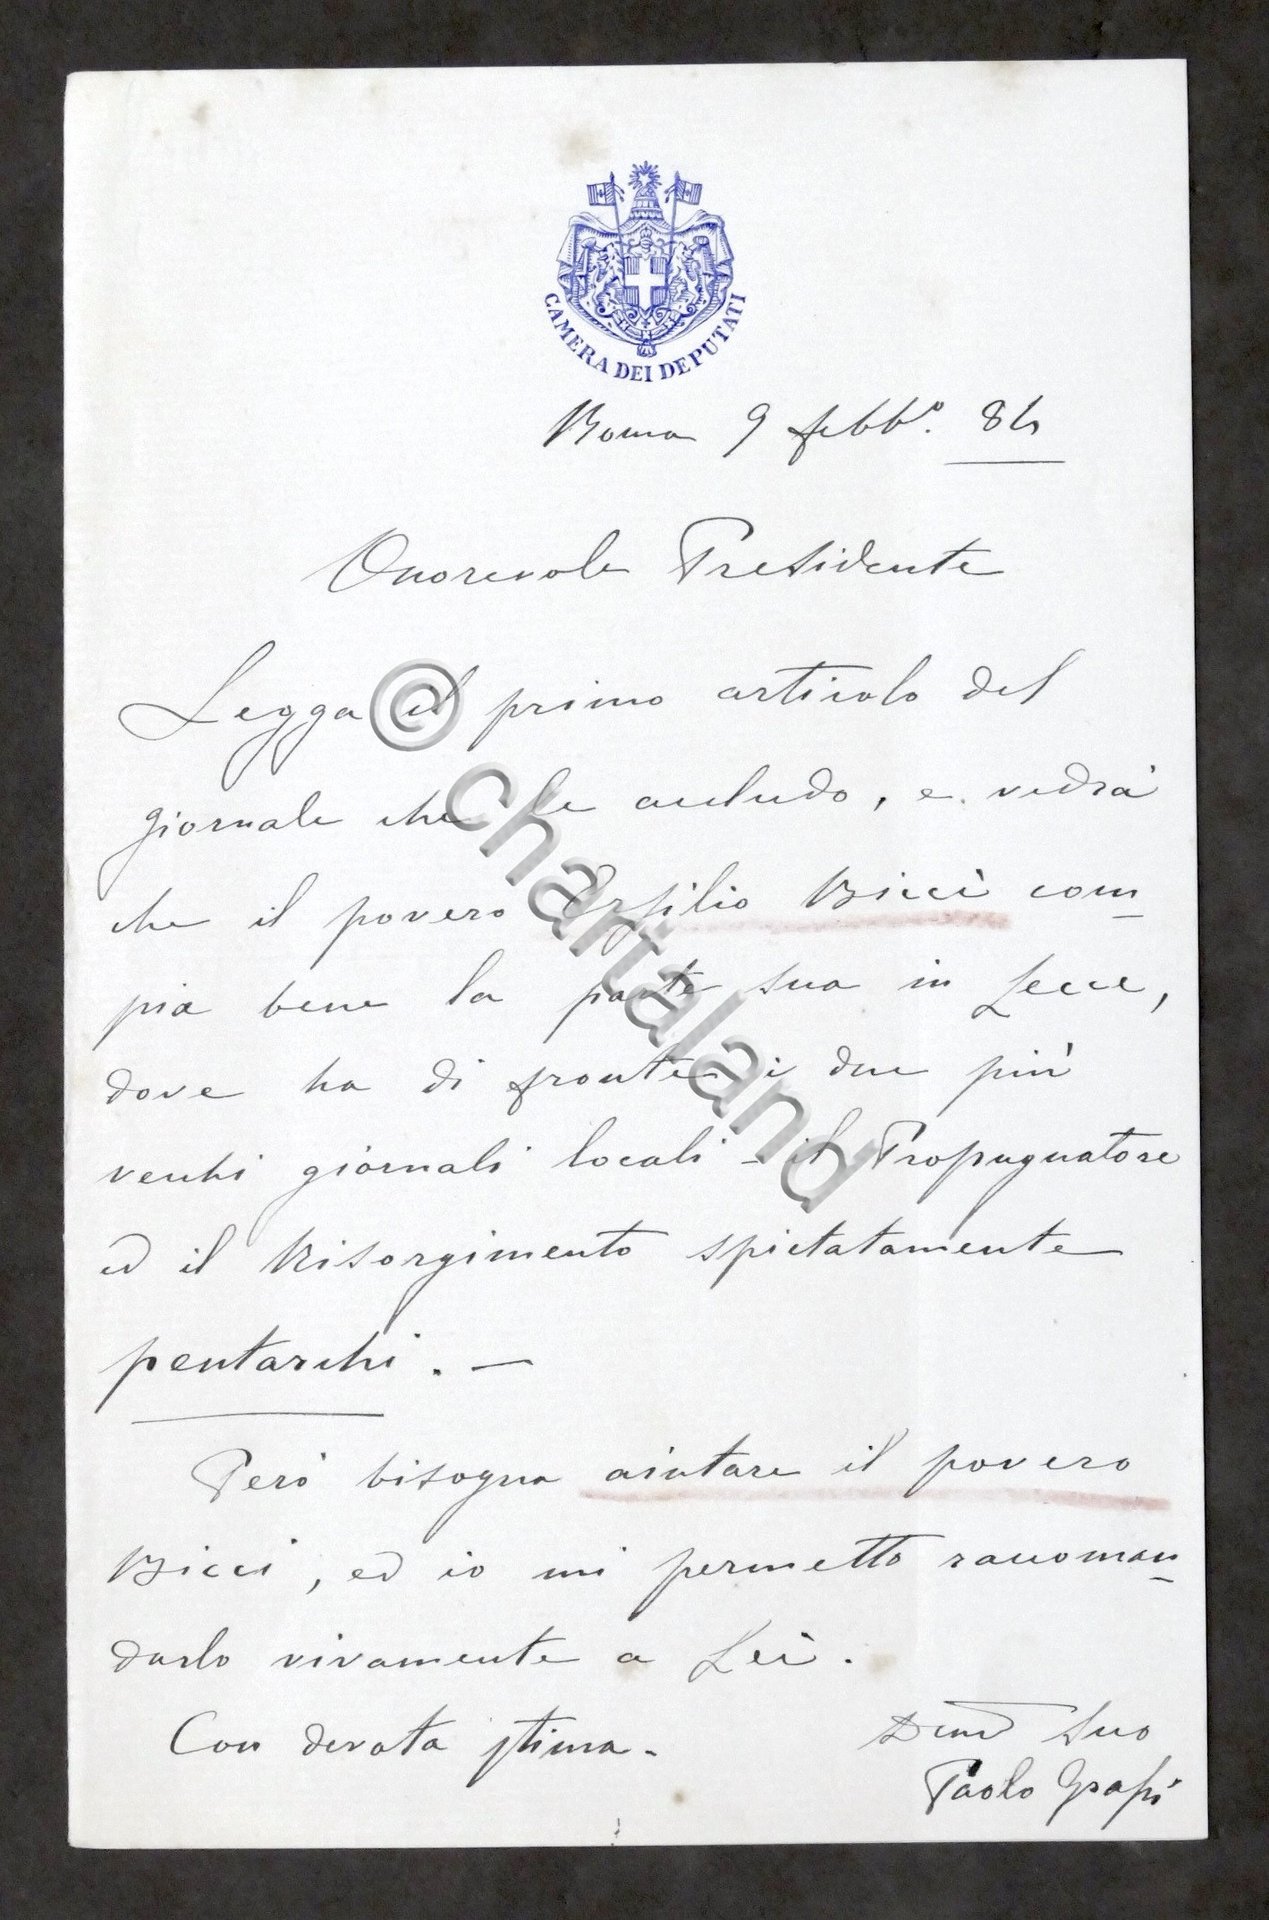 CAMERA DEI DEPUTATI
Roma 9 febb.º 84
Onorevole Presidente
Legga il primo articolo del
giornale che le accludo, e vedrà
che il povero Ersilio Bicci com-
pia bene la parte sua in Lecce,
dove ha di fronte i due più
vecchi giornali locali - il Propugnatore
ed il Risorgimento spietatamente
pentarchi. -
Però bisogna aiutare il povero
Bicci, ed io mi permetto raccoman-
darlo vivamente a Lei.
Con devota stima -
Suo
Paolo Grassi
© chartaland